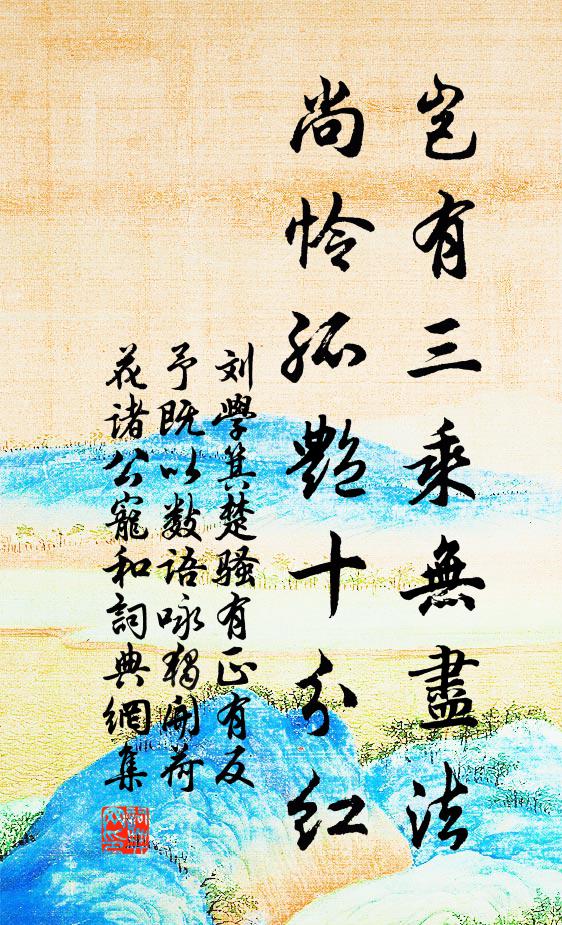 岂有三乘無盡法
尚怜孤艷十分红
刘學箕楚骚有正有反
予既以数语咏独開荷
花诸公寵和詞典網集